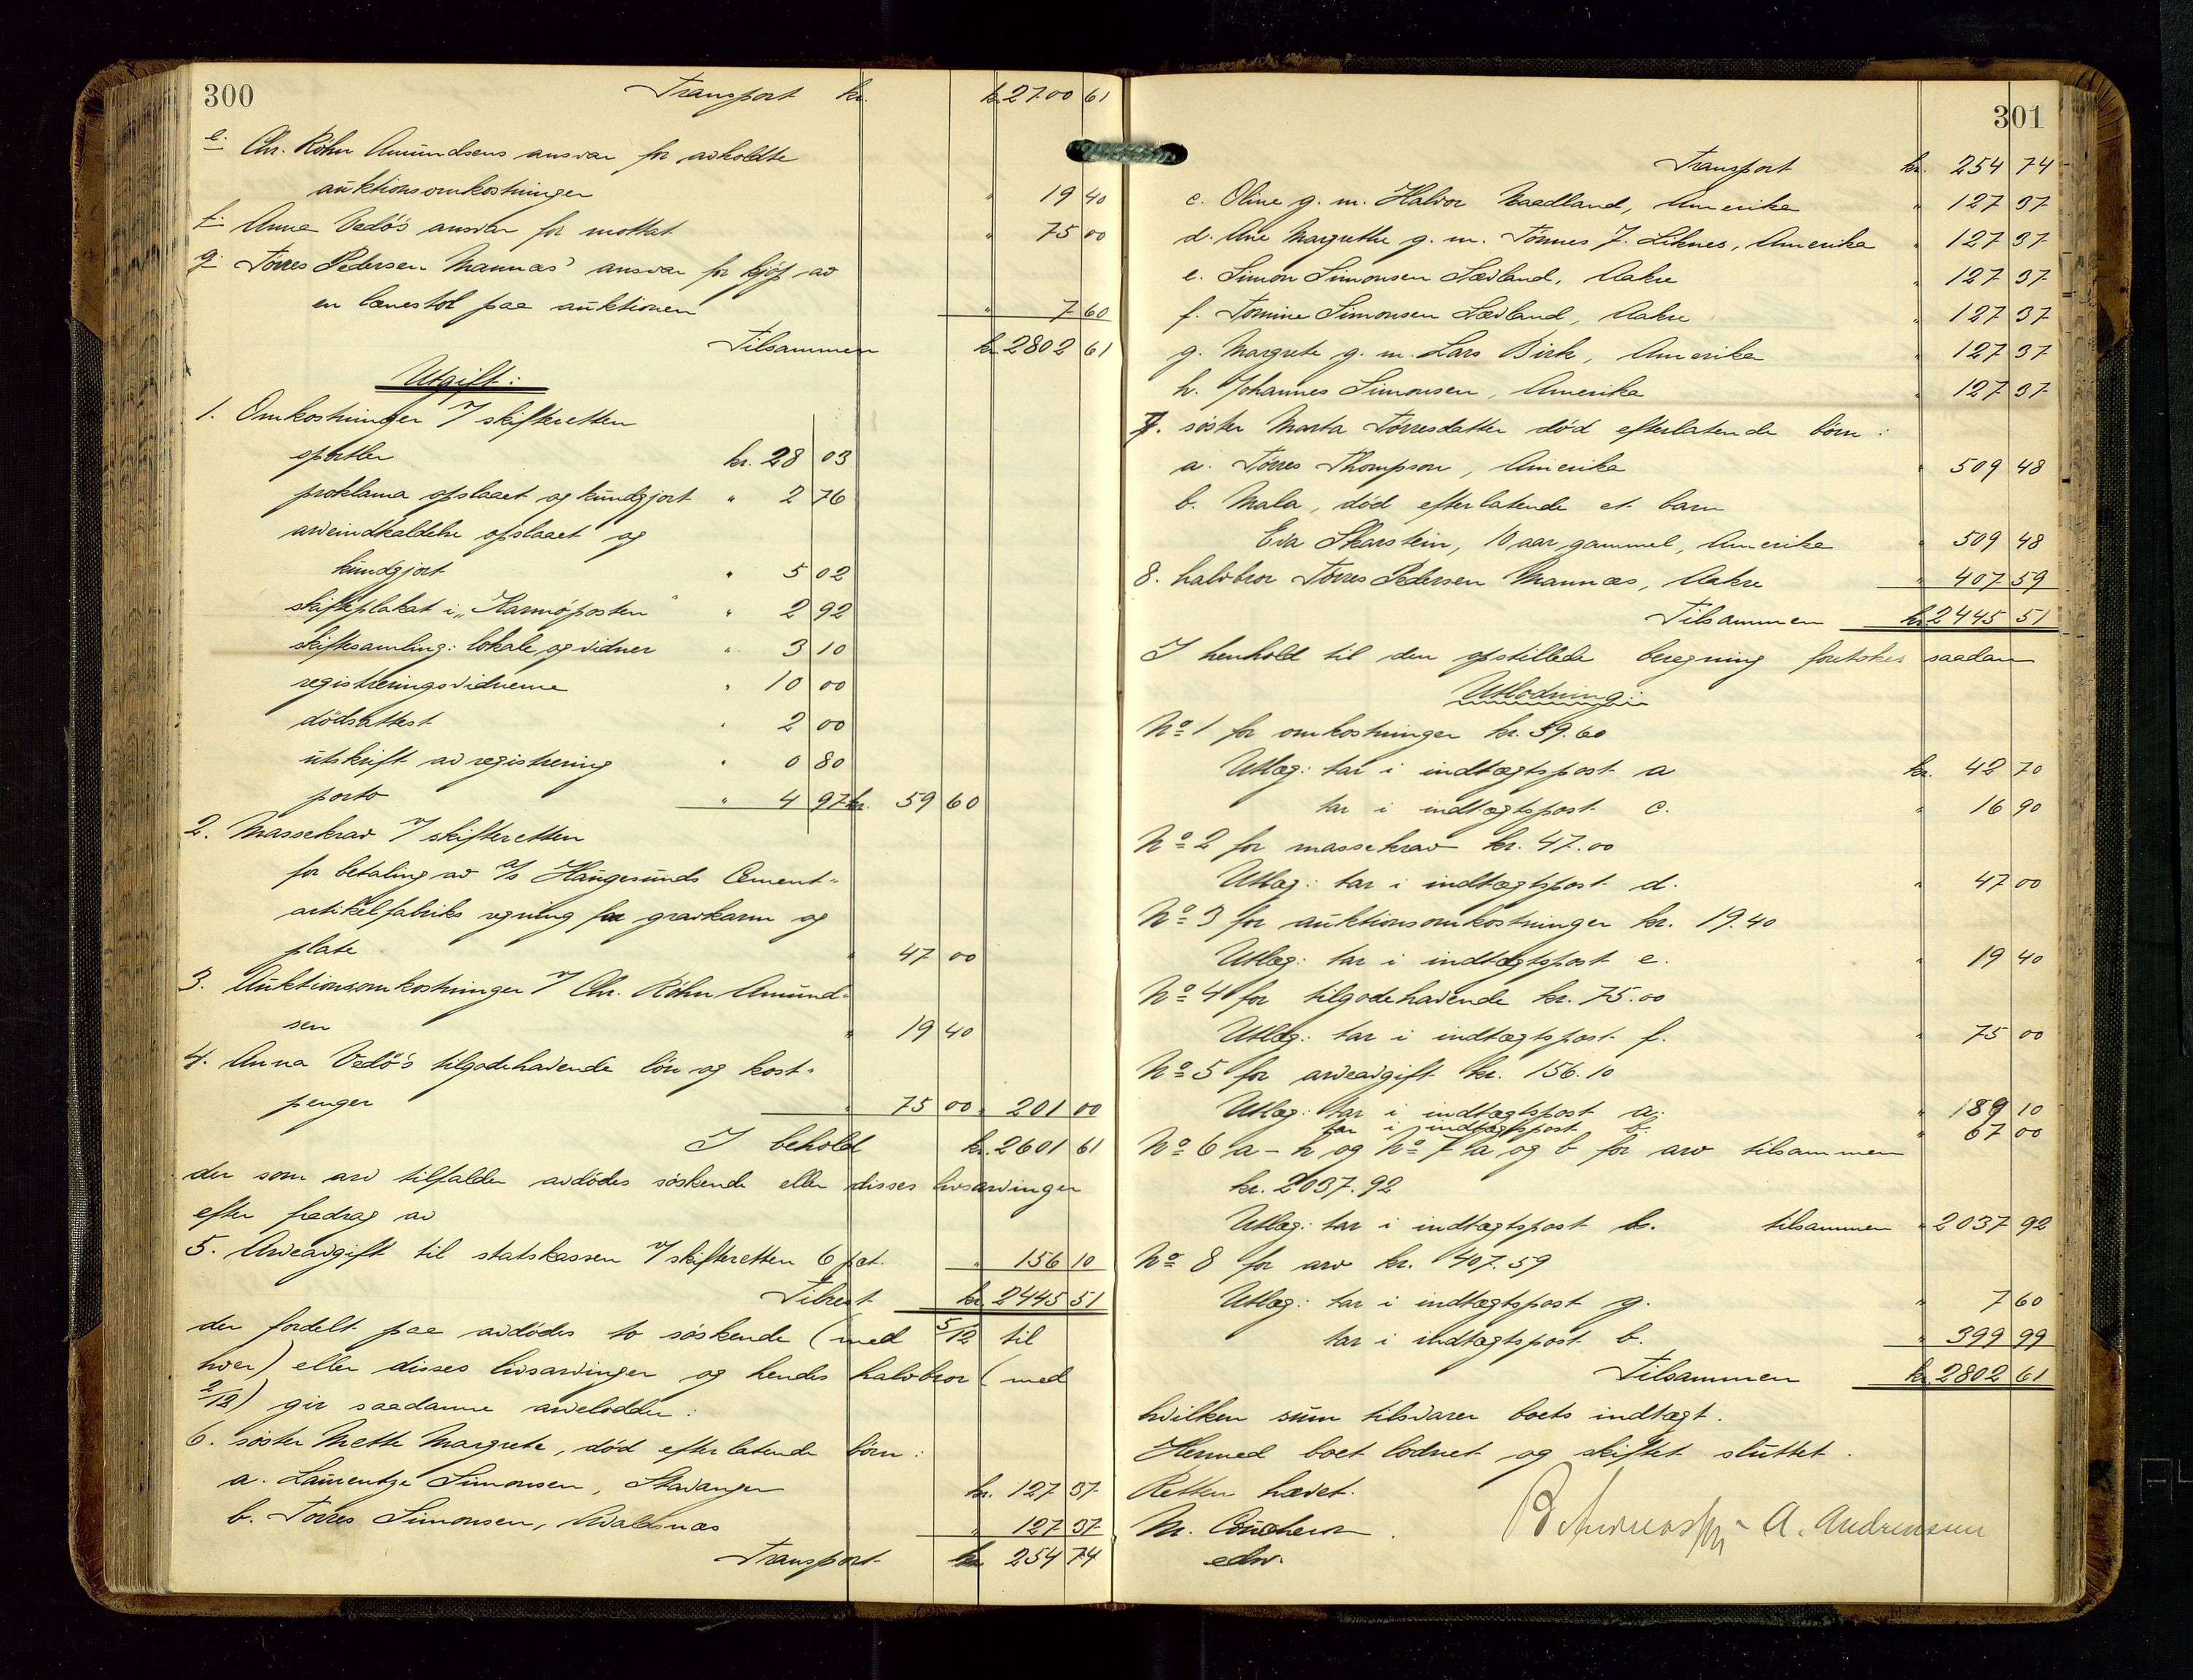 300
Transport kr. kr. 2700 61
e. Chr. Röhn Amundsens ansvar for avholdte
auktionsomkostninger " 19 40
f. Anna Vedö's ansvar for mottat " 75 00
g. Törres Pedersen Mannæs' ansvar for kjöp av
en lænestol paa auktionen " 7 60
Tilsammen kr. 2802 61
Utgift:
1. Omkostninger v/ skifteretten
sportler kr. 28 03
proklama opslaaet og kundgjort " 2 76
arveindkaldelse opslaaet og
kundgjort " 5 02
skifteplakat i „Karmöposten" " 2 92
skiftesamling: lokale og vidner " 3 10
registreringsvidnerne " 10 00
dödsattest " 2 00
utskrift av registrering " 0 80
porto " 4 97 kr. 59 60
2. Massekrav v/ skifteretten
for betaling av A/S Haugesunds Cement-
artikelfabriks regning for gravkarm og
plate " 47 00
3. Auktionsomkostninger v/ Chr. Röhn Amund-
sen " 19 40
4. Anna Vedö's tilgodehavende lön og kost-
penger " 75 00 " 201 00
I behold kr. 2601 61
der som arv tilfalder avdödes söskende eller disses livsarvinger
efter fradrag av
5. Arveavgift til statskassen v/ skifteretten 6 pct. " 156 10
Tilrest kr. 2445 51
der fordelt paa avdödes to söskende (med 5/12 til
hver) eller disses livsarvinger og hendes halvbror (med
2/12) gir saadanne arvelodder:
6. söster Mette Margrete, död efterlatende börn:
a. Laurentze Simonsen, Stavanger kr. 127 37
b. Törres Simonsen, Avaldsnæs " 127 37
Transport kr. 254 74
301
Transport kr. 254 74
c. Oline g. m. Halvor Naadland, Amerika " 127 37
d. Ane Margrethe g. m. Tönnes J. Liknes, Amerika " 127 37
e. Simon Simonsen Sævland, Aakre " 127 37
f. Tomine Simonsen Sævland, Aakre " 127 37
g. Margrete g. m. Lars Birk, Amerika " 127 37
h. Johannes Simonsen, Amerika " 127 37
7. söster Marta Törresdatter död efterlatende börn:
a. Törres Thompson, Amerika " 509 48
b. Mala, död efterlatende et barn
Eva Skarstein, 10 aar gammel, Amerika " 509 48
8. halvbror Törres Pedersen Mannæs, Aakre " 407 59
Tilsammen kr. 2445 51
I henhold til den opstillede beregning foretokes saadan
Utlodning:
No 1 for omkostninger kr. 59.60
Utlæg: tar i indtægtspost a kr. 42 70
tar i indtægtspost c. " 16 90
No 2 for massekrav kr. 47.00
Utlæg: tar i indtægtspost d. " 47 00
No 3 for auktionsomkostninger kr. 19.40
Utlæg: tar i indtægtspost e. " 19 40
No 4 for tilgodehavende kr. 75.00
Utlæg: tar i indtægtspost f. " 75 00
No 5 for arveavgift kr. 156.10
Utlæg: tar i indtægtspost a. " 189 10
tar i indtægtspost b. " 67 00
No 6 a - h og No 7 a og b for arv tilsammen
kr. 2037.92
Utlæg: tar i indtægtspost b. tilsammen " 2037 92
No 8 for arv kr. 407.59
Utlæg: tar i indtægtspost g. " 7 60
tar i indtægtspost b. " 399 99
Tilsammen kr. 2802 61
hvilken sum tilsvarer boets indtægt.
Hermed boet lodnet og skiftet sluttet.
Retten hævet.
M. Coucheron. A. Andreassen
edsv.